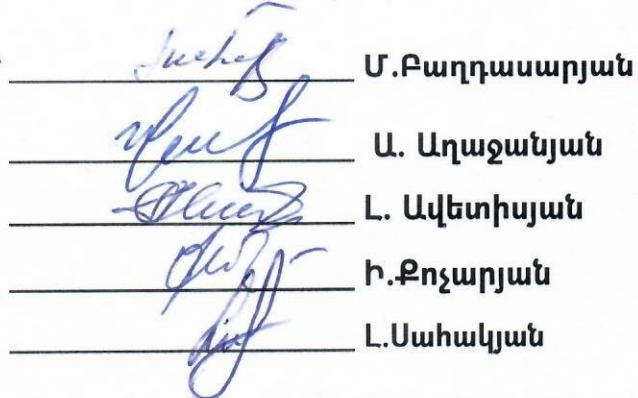 Մ.Բաղդասարյան
Ա. Աղաջանյան
Լ. Ավետիսյան
Ի.Քոչարյան
Լ.Սահակյան